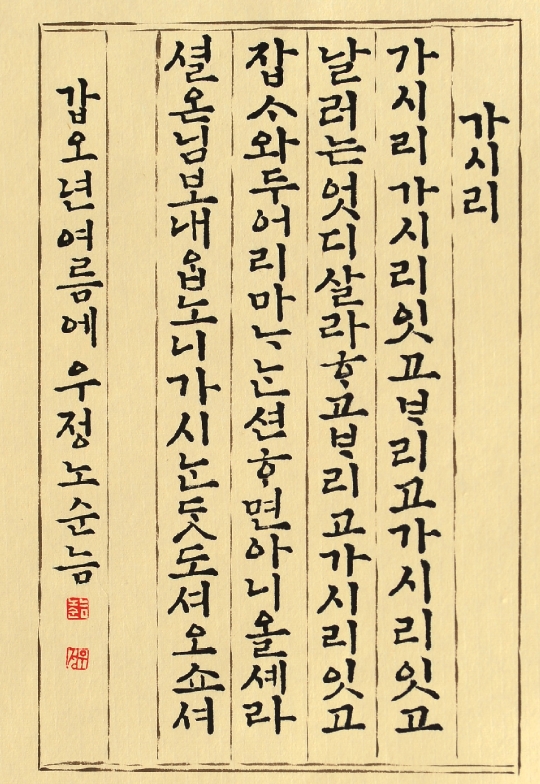 가시리
가시리가시리잇고ᄇᆞ리고가시리잇고
날러는엇디살라ᄒᆞ고ᄇᆞ리고가시리잇고
잡ᄉᆞ와두어리마ᄂᆞᄂᆞᆫ션ᄒᆞ면아니올셰라
셜온님보내ᄋᆞᆸ노니가시ᄂᆞᆫᄃᆞᆺ도셔오쇼셔
갑오년여름에 우정노순늠